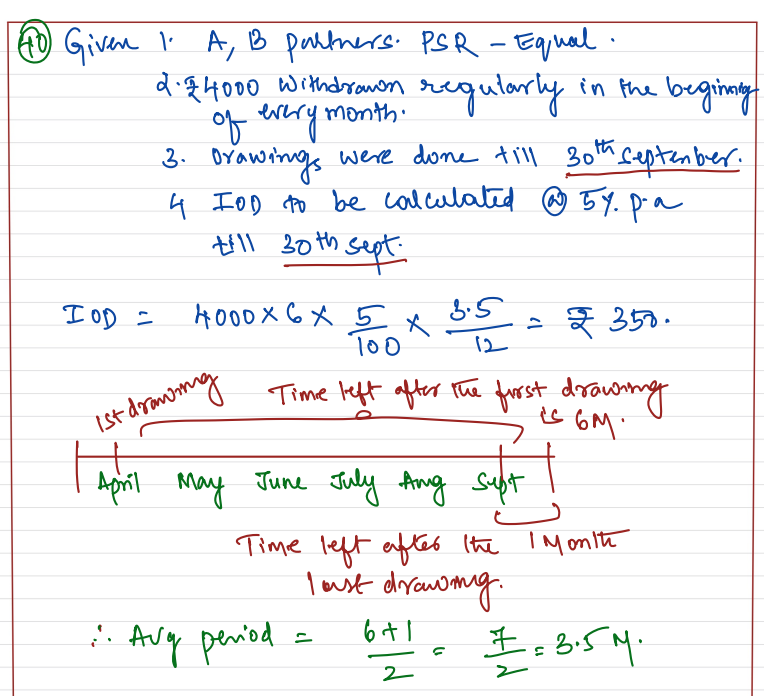 40 Given 1. A, B partners. PSR - Equal.
2. ₹4000 Withdrawn regularly in the beginning
of every month.
3. Drawings were done till 30th September.
4 IOD to be calculated @ 5%. p.a
till 30th sept.
IOD = 4000 × 6 × 5/100 × 3.5/12 = ₹ 350.
1st drawing Time left after the first drawing
is 6M.
April May June July Aug Sept
Time left after the 1 Month
last drawing.
∴ Avg period = 6+1/2 = 7/2 = 3.5 M.